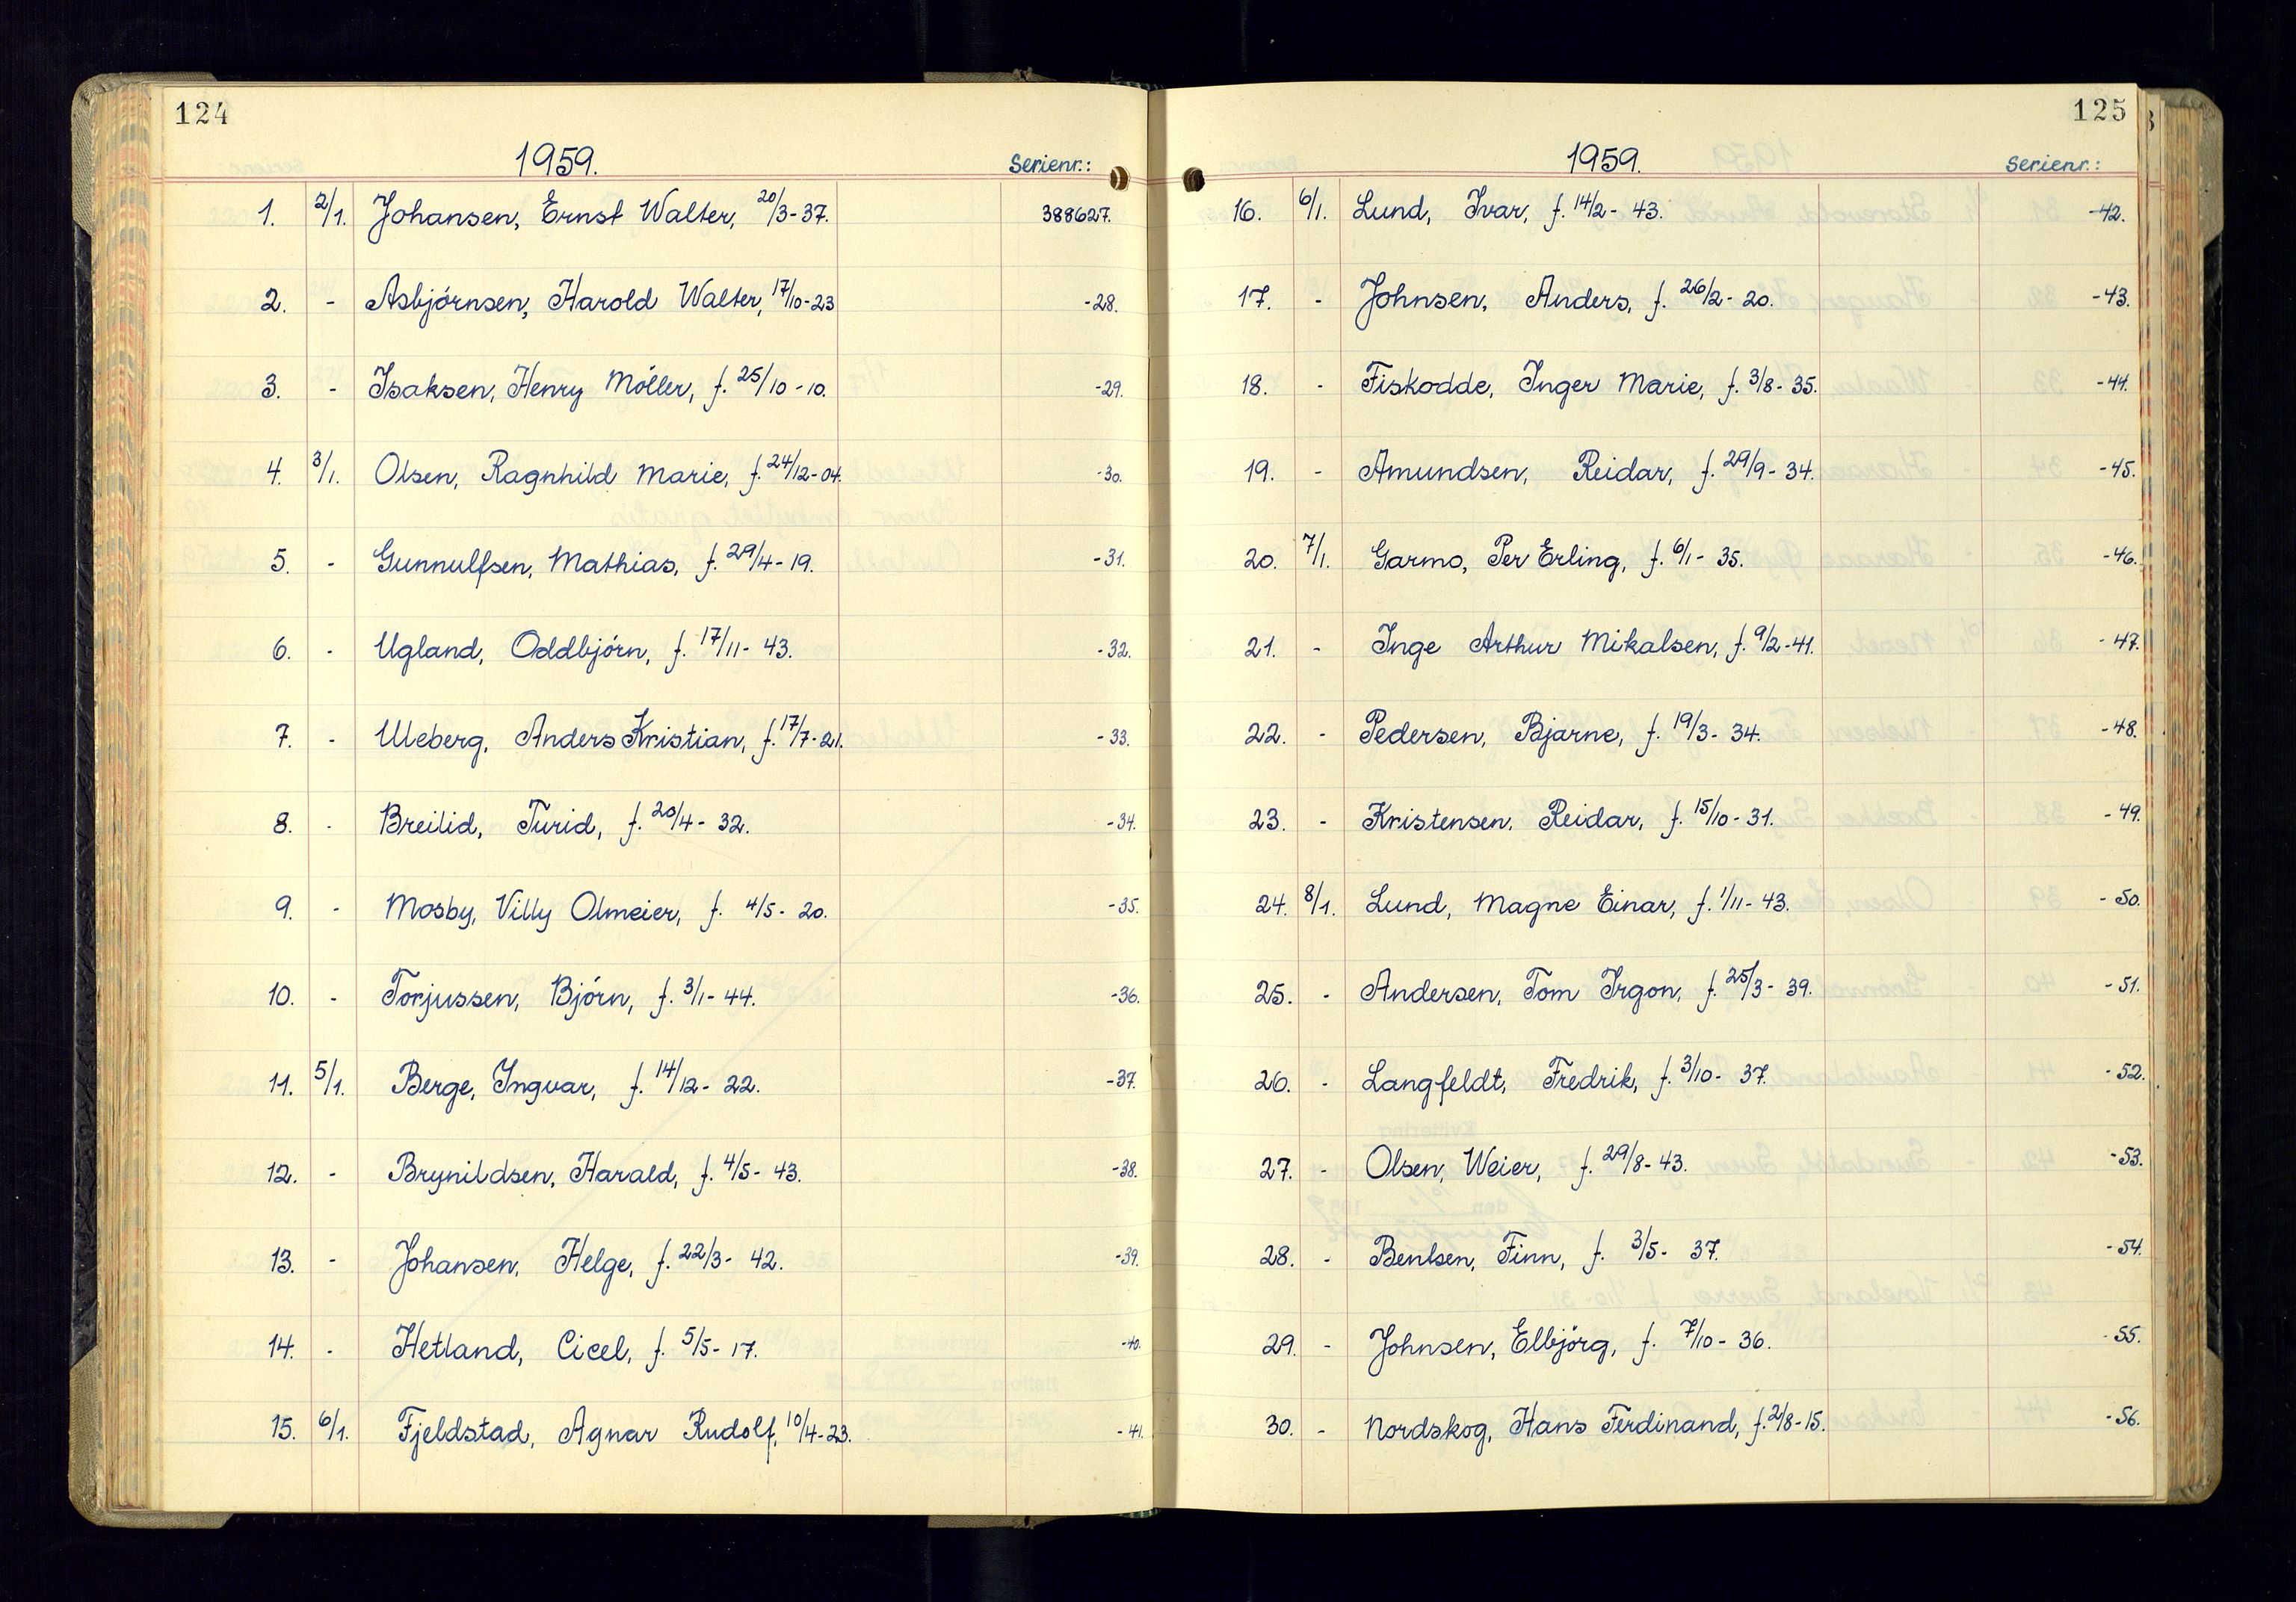 124
1959. Serienr.:
1. 2/1. Johansen, Ernst Walter, 20/3-37. 388627.
2. - Asbjórnsen, Harold Walter, 17/10-23 -28.
3. - Isaksen, Henry Móller, f. 25/10-10. -29.
4. 3/1. Olsen, Ragnhild Marie, f. 24/12-04. -30.
5. - Gunnulfsen, Mathias, f. 29/4-19. -31.
6. - Ugland, Oddbjórn, f. 17/11-43. -32.
7. - Ueberg, Anders Kristian, f. 17/7-21. -33.
8. - Breilid, Turid, f. 20/4-32. -34.
9. - Mosby, Villy Olmeier, f. 4/5-20. -35.
10. - Torjussen, Bjórn, f. 3/1-44. -36.
11. 5/1. Berge, Ingvar, f. 14/12-22. -37.
12. - Brynildsen, Harald, f. 4/5-43. -38.
13. - Johansen, Helge, f. 22/3-42. -39.
14. - Hetland, Cicel, f. 5/5-17. -40.
15. 6/1. Fjeldstad, Agnar Rudolf, 10/4-23. -41.
125
1959. Serienr.:
16. 6/1. Lund, Ivar, f. 14/2-43. -42.
17. - Johnsen, Anders, f. 26/2-20. -43.
18. - Fiskodde, Inger Marie, f. 3/8-35. -44.
19. - Amundsen, Reidar, f. 29/9-34. -45.
20. 7/1. Garmo, Per Erling, f. 6/1-35. -46.
21. - Inge Arthur Mikalsen, f. 9/2-41. -47.
22. - Pedersen, Bjarne, f. 19/3-34. -48.
23. - Kristensen, Reidar, f. 15/10-31. -49.
24. 8/1. Lund, Magne Einar, f. 1/11-43. -50.
25. - Andersen, Tom Irgon, f. 25/3-39. -51.
26. - Langfeldt, Fredrik, f. 3/10-37. -52.
27. - Olsen, Weier, f. 29/8-43. -53.
28. - Bentsen, Finn, f. 3/5-37. -54.
29. - Johnsen, Elbjórg, f. 7/10-36. -55.
30. - Nordskog, Hans Ferdinand, f. 2/8-15. -56.